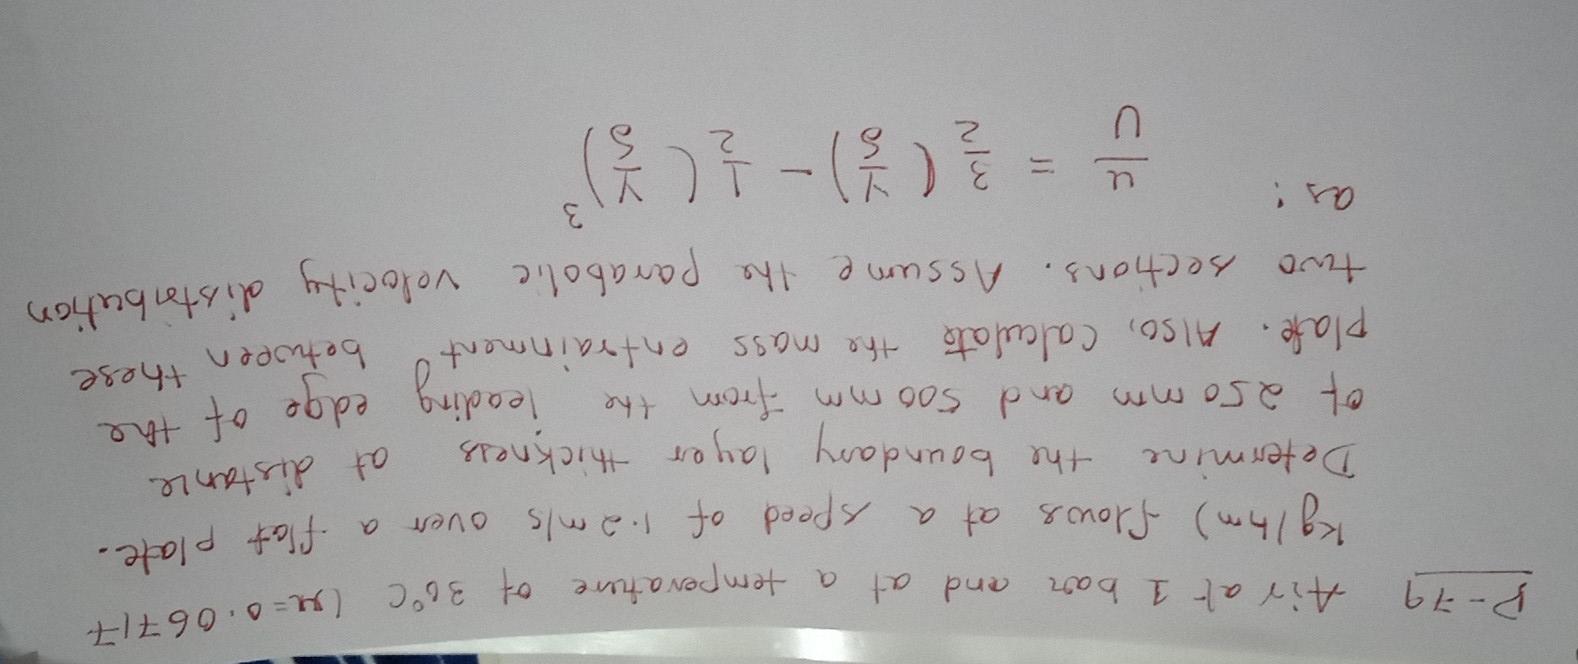 P-79 Air at 1 bar and at a temperature of 30°C (μ=0.06717
kg/hm) flows at a speed of 1.2 m/s over a flat plate.
Determine the boundary layer thickness at distance
of 250 mm and 500 mm from the leading edge of the
plate. Also, calculate the mass entrainment between these
two sections. Assume the parabolic velocity distribution
as: u/U = 3/2 (y/δ) - 1/2 (y/δ)³